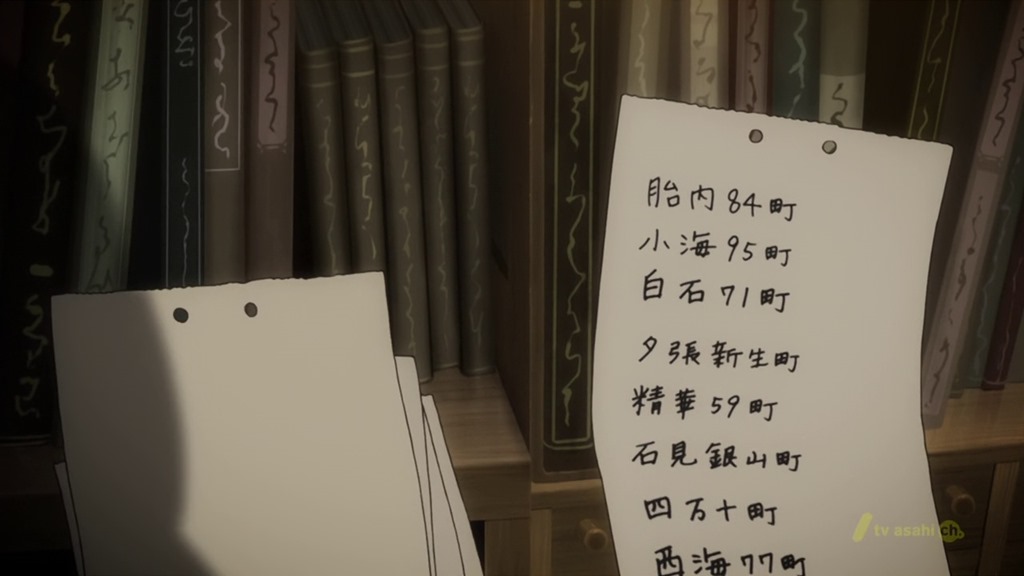 胎内84町
小海95町
白石71町
夕張新生町
精華59町
石見銀山町
四万十町
西海77町
tv asahi ch.